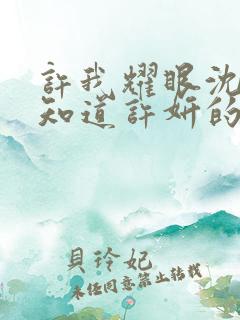 許我耀眼沈
知道許妍的
貝玲妃
未經同意禁止轉載